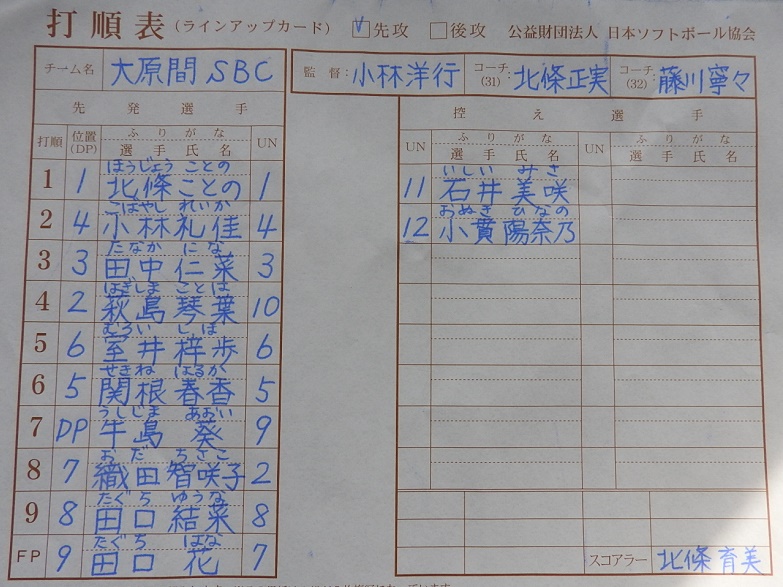 打順表 (ラインアップカード) ☑先攻 □後攻 公益財団法人 日本ソフトボール協会
チーム名 大原間SBC 監督: 小林洋行 コーチ(31): 北條正実 コーチ(32): 藤川寧々
先発選手
打順 位置(DP) ふりがな 選手氏名 UN
ほうじょう ことの
1 1 北條ことの 1
こばやし れいか
2 4 小林礼佳 4
たなか にな
3 3 田中仁菜 3
はぎしま ことは
4 2 萩島琴葉 10
むろい しほ
5 6 室井梓歩 6
せきね はるか
6 5 関根春香 5
うしじま あおい
7 DP 牛島葵 9
おだ ちさこ
8 7 織田智咲子 2
たぐち ゆうな
9 8 田口結菜 8
たぐち はな
FP 9 田口花 7
控え選手
UN ふりがな 選手氏名 UN ふりがな 選手氏名
いしい みさ
11 石井美咲
おぬき ひなの
12 小貫陽奈乃
スコアラー 北條育美